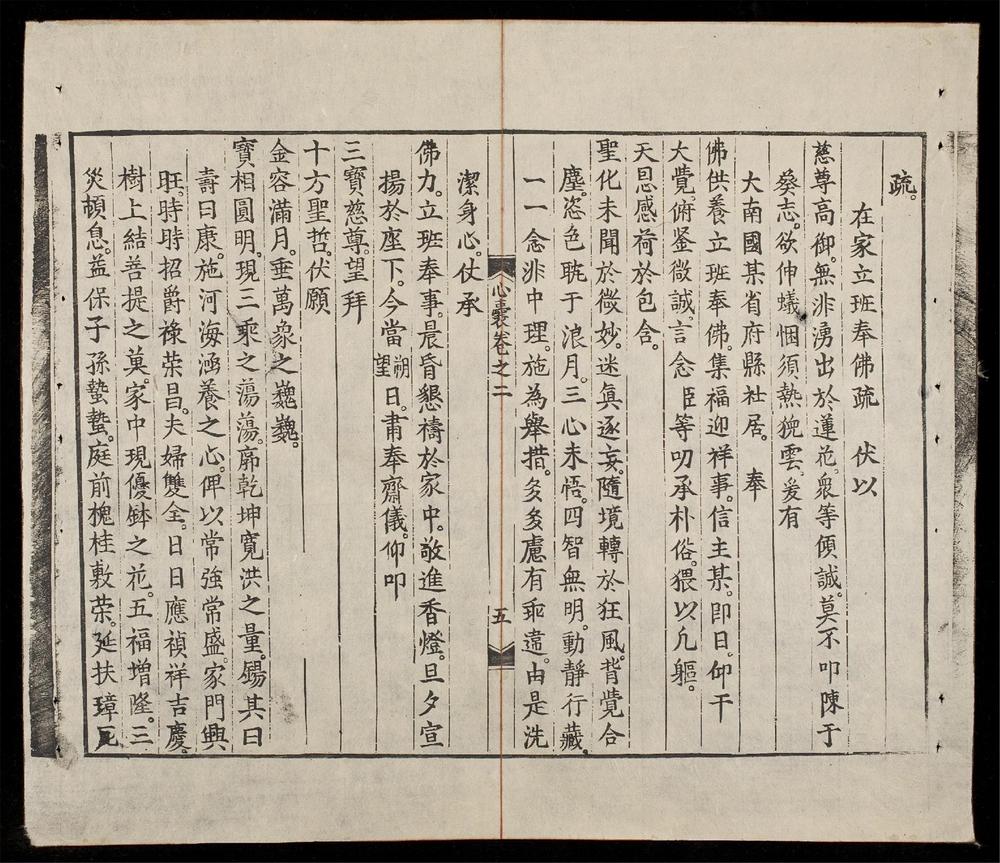 疏。
在家立班奉佛疏　伏以
慈尊高御。無非湧出於蓮花。衆等傾誠。莫不叩陳于
癸志。欲伸蟻悃須熱猊雲。爰有
大南國某省府縣社居。　奉
佛供養立班奉佛。集福迎祥事。信主某。即日。仰干
大覺。俯鉴微誠。言念臣等叨承朴俗。猥以凢軀。
天恩感荷於包含。
聖化未聞於微妙。迷眞逐妄。隨境轉於狂風。背覺合
塵。恣色晄于浪月。三心未悟。四智無明。動靜行藏。
一一念非中理。施為舉措。多多慮有乖違。由是洗
心囊卷之二　五
潔身心。仗承
佛力。立班奉事。晨昏懇禱於家中。敬進香燈。旦夕宣
揚於座下。今當朔望日。肅奉齋儀。仰叩
三寶慈尊。望拜
十方聖哲。伏願
金容滿月。垂萬象之巍巍。
寶相圓明。現三乘之蕩蕩。廓乾坤寬洪之量。錫其曰
壽曰康。施河海涵養之心。俾以常強常盛。家門興
旺。時時招爵祿荣昌。夫婦雙全。日日應禎祥吉慶。
樹上結菩提之菓。家中現優鉢之花。五福增隆。三
災頓息。益保子孫蟄蟄。庭前槐桂敷荣。延扶璋瓦